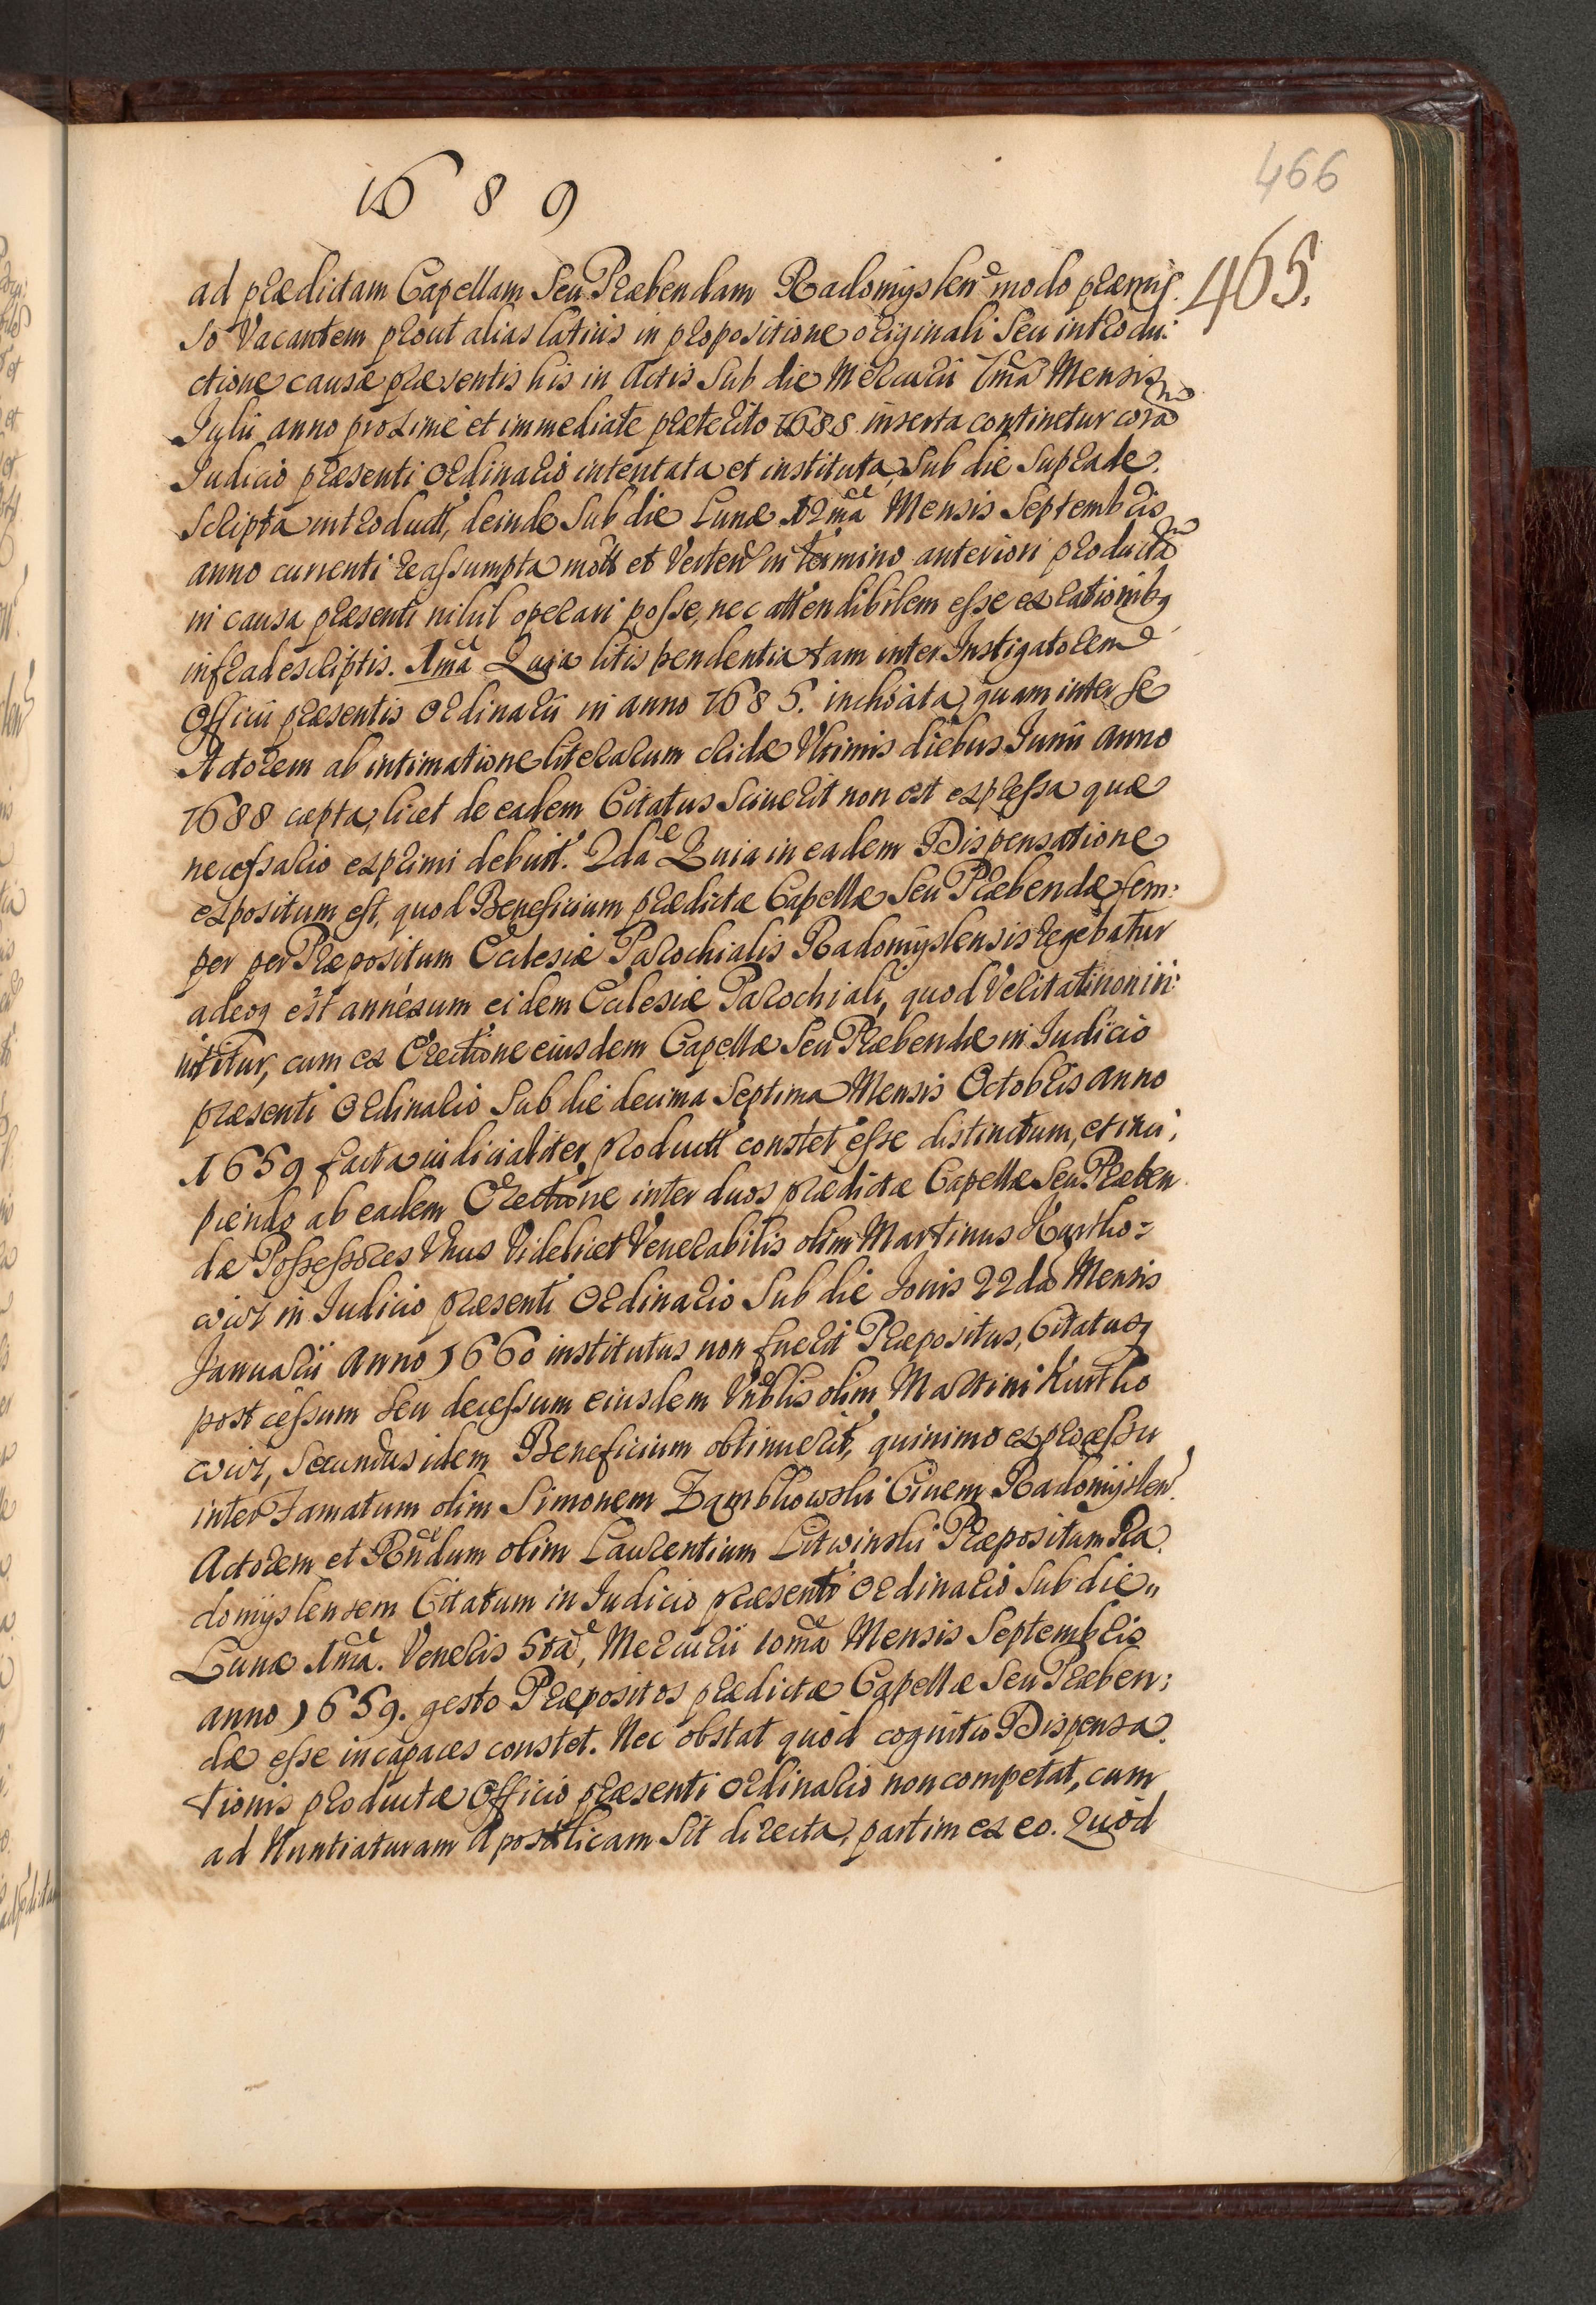 1689
466
465.
ad prædictam Capellam Seu Præbendam Radomyslen modo præmis.
so Vacantem prout alias latius in propositione originali Seu introdu:
ctione causæ præsentis his in Actis Sub die Mercurii 7ma Mensis
Iulii anno proxime et immediate præterito 1688 inserta continetur coram
Iudicio præsenti Ordinario intentata et instituta, Sub die Suprade.
Scripta introduct, deinde Sub die Lunæ 12ma Mensis Septembris
anno currenti reassumpta mott et Verten in termino anteriori producta
in causa præsenti nihil operari posse, nec attendibilem esse ex rationibq
infradescriptis. 1ma Quia litis pendentia tam inter Instigatorem
Officii præsentis Ordinarii in anno 1685. inchoata, quam inter se
Actorem ab intimatione literarum cridæ Vltimis diebus Iunii anno
1688 cæpta, licet de eadem Citatus Sciverit non est expressa quæ
necessario exprimi debuit. 2da Quia in eadem Dispensatione
expositum est, quod Beneficium prædictæ Capellæ Seu Præbendæ sem:
per per Præpositum Ecclesiæ Parochialis Radomyslensis regebatur
adeoq est annexum eidem Ecclesiæ Parochiali, quod Veritati non in:
nititur, cum ex Erectione eiusdem Capellæ Seu Præbendæ in Iudicio
præsenti Ordinario Sub die decima Septima Mensis Octobris anno
1659 facta iudicialiter, product constet esse distinctum, et inci;
piendo ab eadem Erectione inter duos prædictæ Capellæ Seu Præben
dæ Possessores Vnus Videlicet Venerabilis olim Martinus Kurtho=
wicz in Iudicio præsenti Ordinario Sub die Iovis 22da Mensis
Ianuarii Anno 1660 institutus non fuerit Præpositus, Citatusq
post cessum seu decessum eiusdem Vnblis olim Martini Kurtho
wicz, Secundus idem Beneficium obtinuerit, quinimo ex processu
inter Famatum olim Simonem Zambkowski Civem Radomyslen
Actorem et Rndum olim Laurentium Litwinski Præpositum Ra.
domyslensem Citatum in Iudicio præsenti Ordinario Sub die,,
Lunæ 1ma. Veneris 5ta, Mercurii 10ma Mensis Septembris
anno 1659. gesto Præpositos prædictæ Capellæ Seu Præben:
dæ esse incapaces constet. Nec obstat quod cognitio Dispensa.
tionis productæ Officio præsenti Ordinario non competat, cum
ad Nuntiaturam Apostolicam Sit directa, partim ex eo. Quod